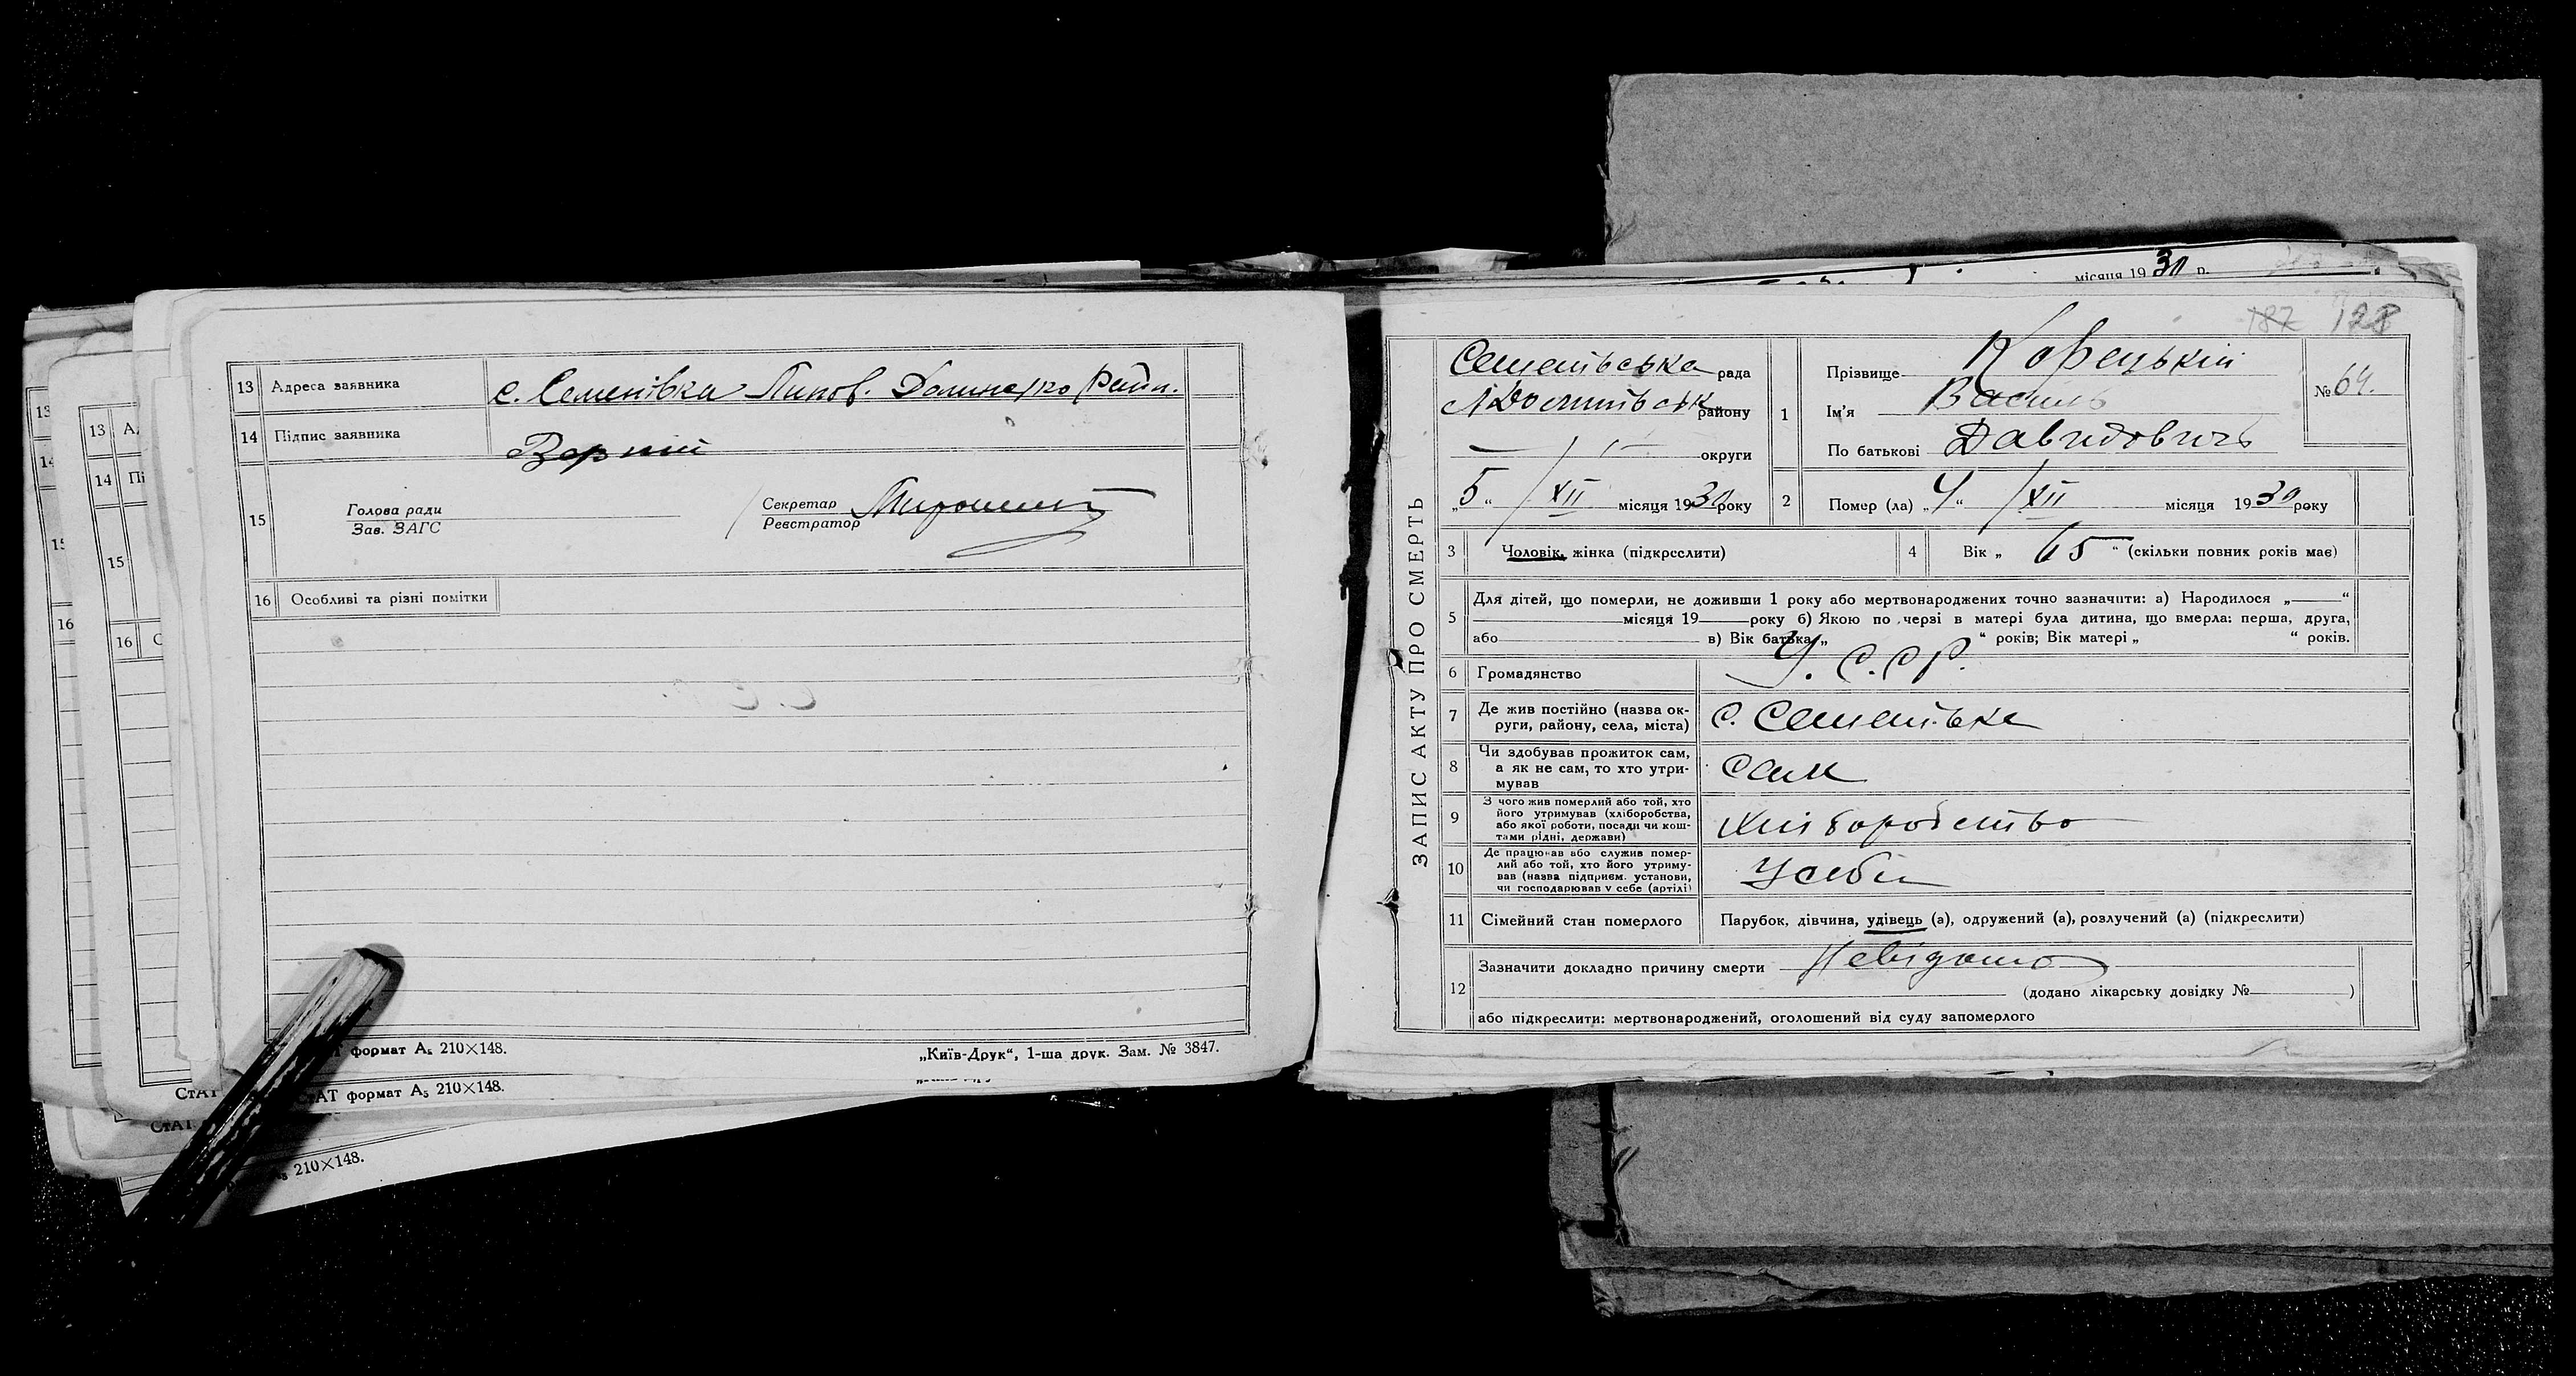 13 Адреса заявника с. Семенівка Липов. Долинского Район.
14 Підпис заявника
15 Голова ради
Зав. ЗАГС
Секретар
Реєстратор
16 Особливі та різні помітки
формат А₅ 210×148.
„Київ-Друк“, 1-ша друк. Зам. № 3847.
СтАТ формат А₅ 210×148.
СтАТ
210×148.
13
14
15
16
13 А
14 Пі
15
16 С
місяця 1930 р.
187 128
ЗАПИС АКТУ ПРО СМЕРТЬ
рада
району
округи
„5“ XII місяця 1930 року
1 Прізвище Корецький
Ім'я Василь
По батькові Давидович
№ 64.
2 Помер (ла) „4“ XII місяця 1930 року
3 Чоловік, жінка (підкреслити)
4 Вік „65“ (скільки повних років має)
5 Для дітей, що померли, не доживши 1 року або мертвонароджених точно зазначити: а) Народилося „ “
місяця 19 року б) Якою по черзі в матері була дитина, що вмерла: перша, друга,
або в) Вік батька „ “ років; Вік матері „ “ років.
6 Громадянство У.С.С.Р.
7 Де жив постійно (назва ок-
руги, району, села, міста) с. Семенівка
8 Чи здобував прожиток сам,
а як не сам, то хто утри-
мував сам
9 З чого жив померлий або той, хто
його утримував (хліборобства,
або якої роботи, посади чи кош-
тами рідні, держави) Хліборобство
10 Де працював або служив помер-
лий або той, хто його утриму-
вав (назва підприєм. установи,
чи господарював у себе (артілі) У себе
11 Сімейний стан померлого Парубок, дівчина, удівець (а), одружений (а), розлучений (а) (підкреслити)
12 Зазначити докладно причину смерти Невідомо
(додано лікарську довідку № )
або підкреслити: мертвонароджений, оголошений від суду запомерлого